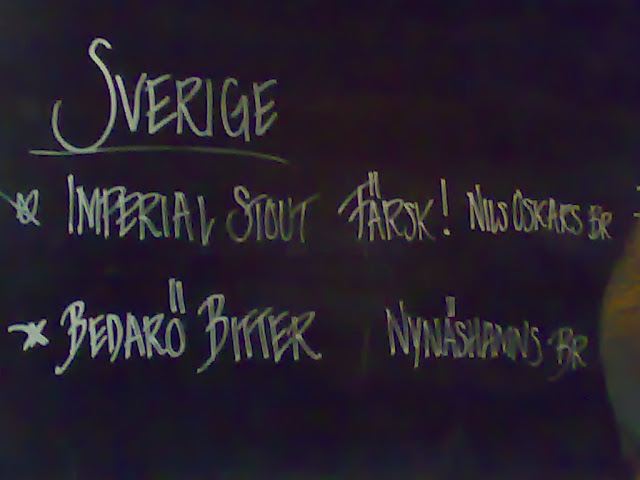 SVERIGE
IMPERIAL STOUT FÄRSK! NILS OSKARS BR
BEDARÖ BITTER NYNÄSHAMNS BR